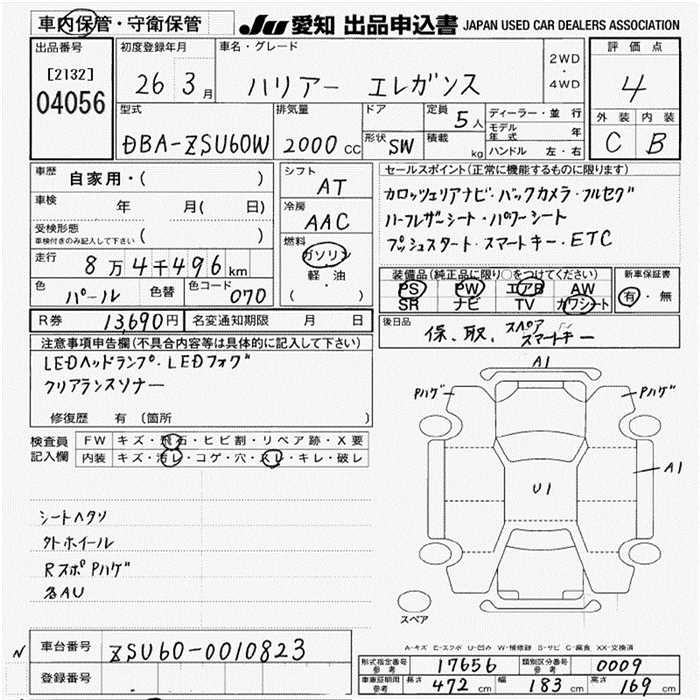 車内保管・守衛保管 JU 愛知 出品申込書 JAPAN USED CAR DEALERS ASSOCIATION
出品番号 [2132] 04056
初度登録年月 26 3月
車名・グレード ハリアー エレガンス
2WD・4WD
評価点 4
外装 C 内装 B
型式 DBA-ZSU60W
排気量 2000CC
ドア
形状 SW
定員 5人
積載 kg
ディーラー・並行
モデル年式 年
ハンドル 左・右
車歴 自家用・( )
車検 年 月( 日)
受検形態 車検付きのみ記入して下さい ( )
走行 8万4千496km
色 パール 色替 色コード 070
シフト AT
冷房 AAC
燃料 ガソリン 軽・油 ・( )
セールスポイント(正常に機能するものに限ります)
カロッツェリアナビ・バックカメラ・フルセグ
ハーフレザーシート・パワーシート
プッシュスタート・スマートキー・ETC
装備品(純正品に限り○をつけてください)
PS PW エアB AW
SR ナビ TV カワシート
新車保証書 有・無
R券 13,690円 名変通知期限 月 日
後日品 保、取、スペア スマートキー
注意事項申告欄(不具合内容等は具体的に記入して下さい)
LEDヘッドランプ・LEDフォグ
クリアランスソナー
修復歴 有 (箇所 )
検査員記入欄
FW キズ・飛石・ヒビ割・リペア跡・X要
内装 キズ・汚レ・コゲ・穴・スレ・キレ・破レ
シートヘタリ
タトホイール
RスポPハゲ
各AU
A1
Pハゲ
Pハゲ
A1
U1
スペア
A-キズ E-エクボ U-凹み W-補修跡 S-サビ C-腐食 XX-交換済
N 車台番号 ZSU60-0010823
登録番号
形式指定番号 参考 17656 類別区分番号 参考 0009
車庫証明用 参考 長さ 472cm 幅 183cm 高さ 169cm